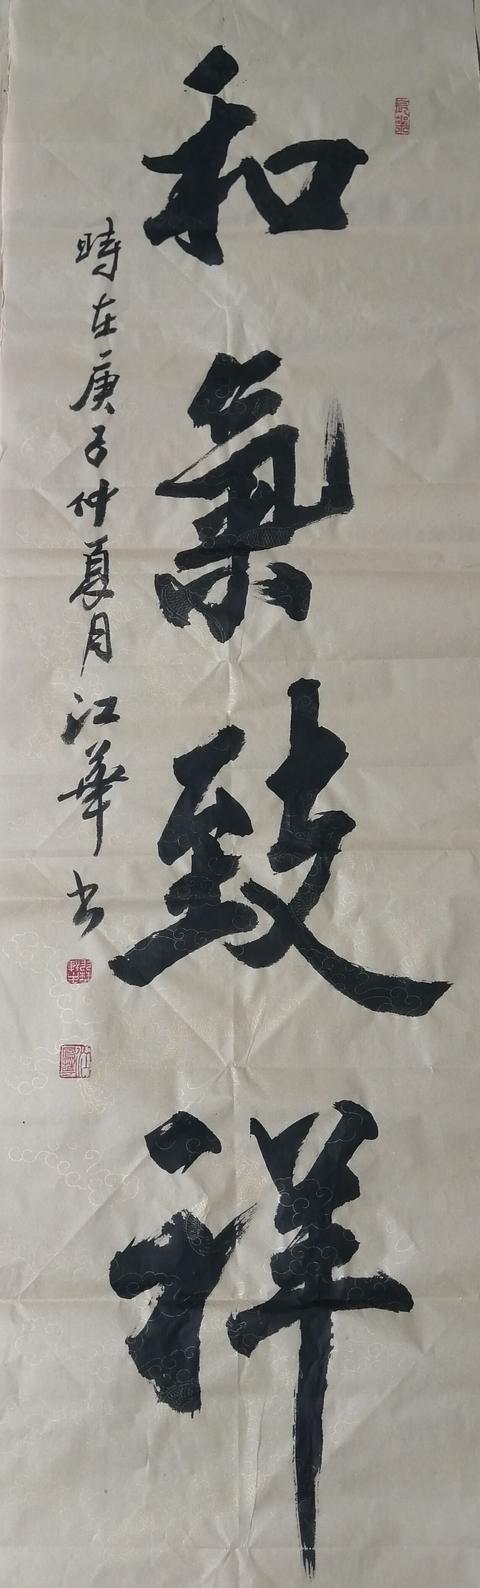 和氣致祥
時在庚子仲夏月江華书